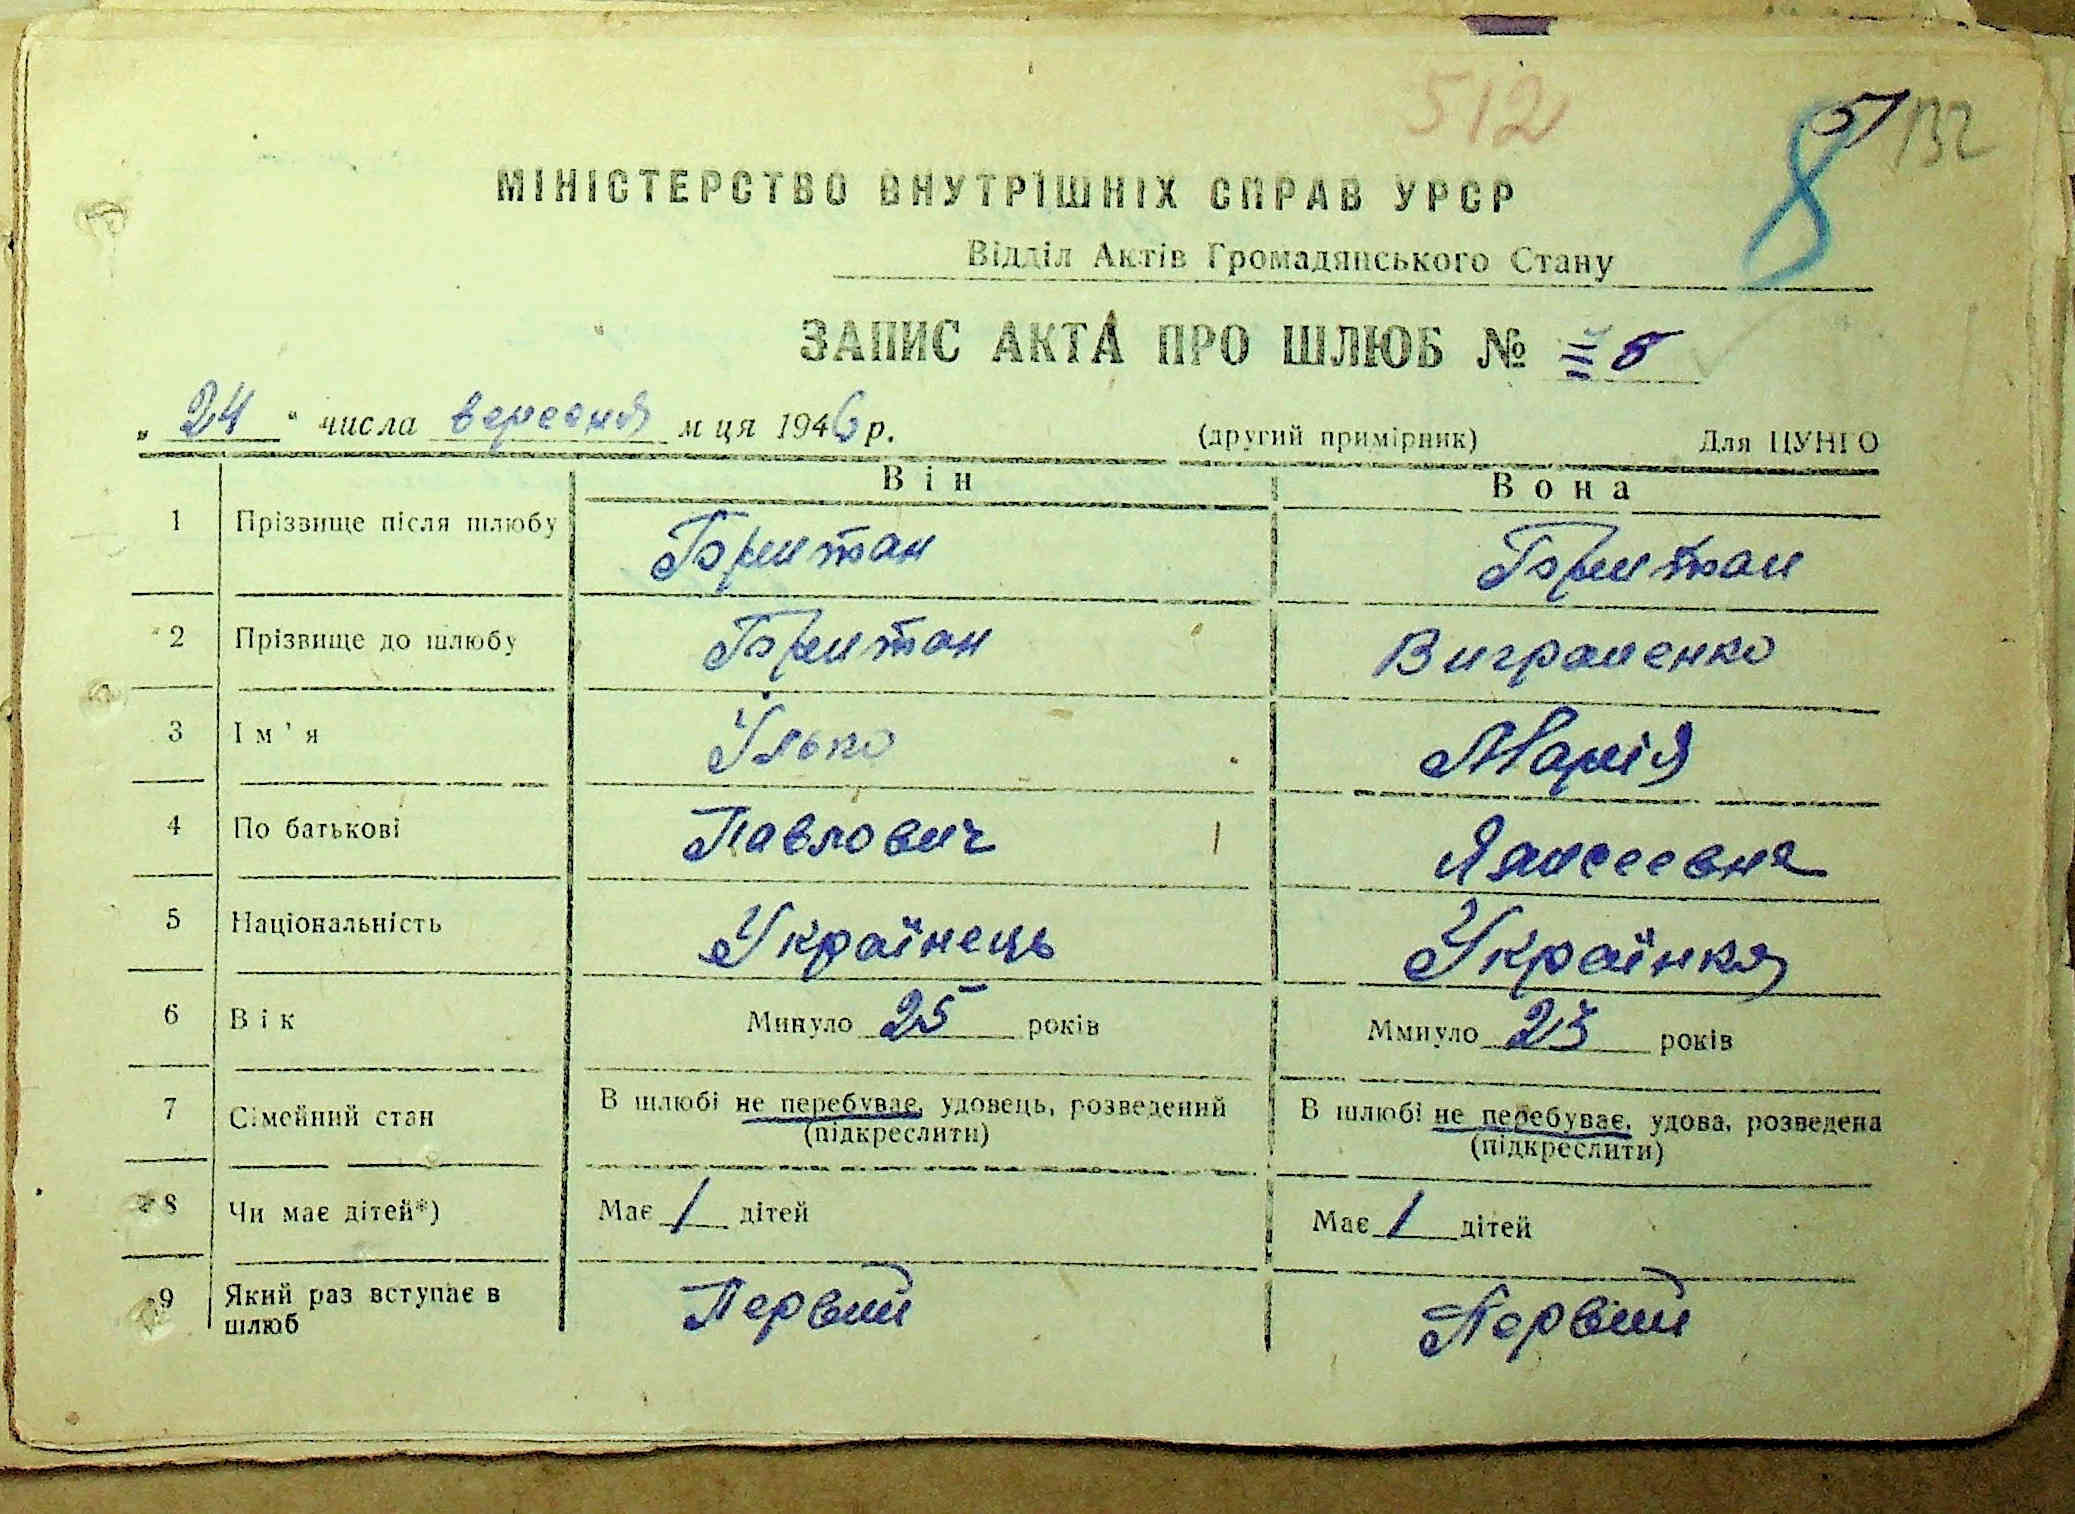 512
8 51 132
МІНІСТЕРСТВО ВНУТРІШНІХ СПРАВ УРСР
Відділ Актів Громадянського Стану
ЗАПИС АКТА ПРО ШЛЮБ № 8
„ 24 " числа вересня м ця 1946 р.
(другий примірник) Для ЦУНГО
Він Вона
1 Прізвище після шлюбу Британ Британ
2 Прізвище до шлюбу Британ Виграненко
3 Ім'я Ілько Марія
4 По батькові Павлович Алисеевна
5 Національність Українець Українка
6 Вік Минуло 25 років Ммнуло 23 років
7 Сімейний стан В шлюбі не перебуває, удовець, розведений В шлюбі не перебуває, удова, розведена
(підкреслити) (підкреслити)
8 Чи має дітей*) Має 1 дітей Має 1 дітей
9 Який раз вступає в Первий Первий
шлюб